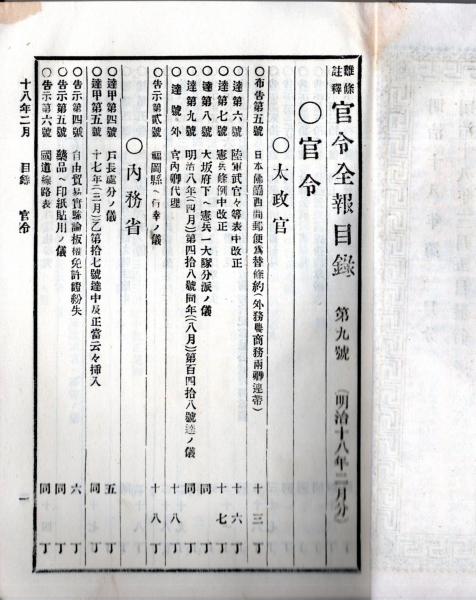 難條註釋 官令全報目錄 第九號 (明治十八年二月分)
○官令
○太政官
○布告第五號 日本佛蘭西間郵便爲替條約(外務農商務兩卿連帶) 十三丁
○達第六號 陸軍武官々等表中改正 十六丁
○達第七號 憲兵條例中改正 十七丁
○達第八號 大坂府下ヘ憲兵一大隊分派ノ儀 同丁
○達第九號 明治八年(四月)第四拾八號同年(八月)第百四拾八號達ノ儀 同丁
○達號外 宮內卿代理 十八丁
○告示第貳號 福岡縣ヘ行幸ノ儀 十八丁
○內務省
○達甲第四號 戶長處分ノ儀 五丁
○達甲第五號 十七年(三月)乙第拾七號達中及正當云々揷入 同丁
○告示第四號 自由貿易實驗論板權免許證紛失 六丁
○告示第五號 藥品ヘ印紙貼用ノ儀 同丁
○告示第六號 國道線路表 同丁
十八年二月 目錄 官令 一